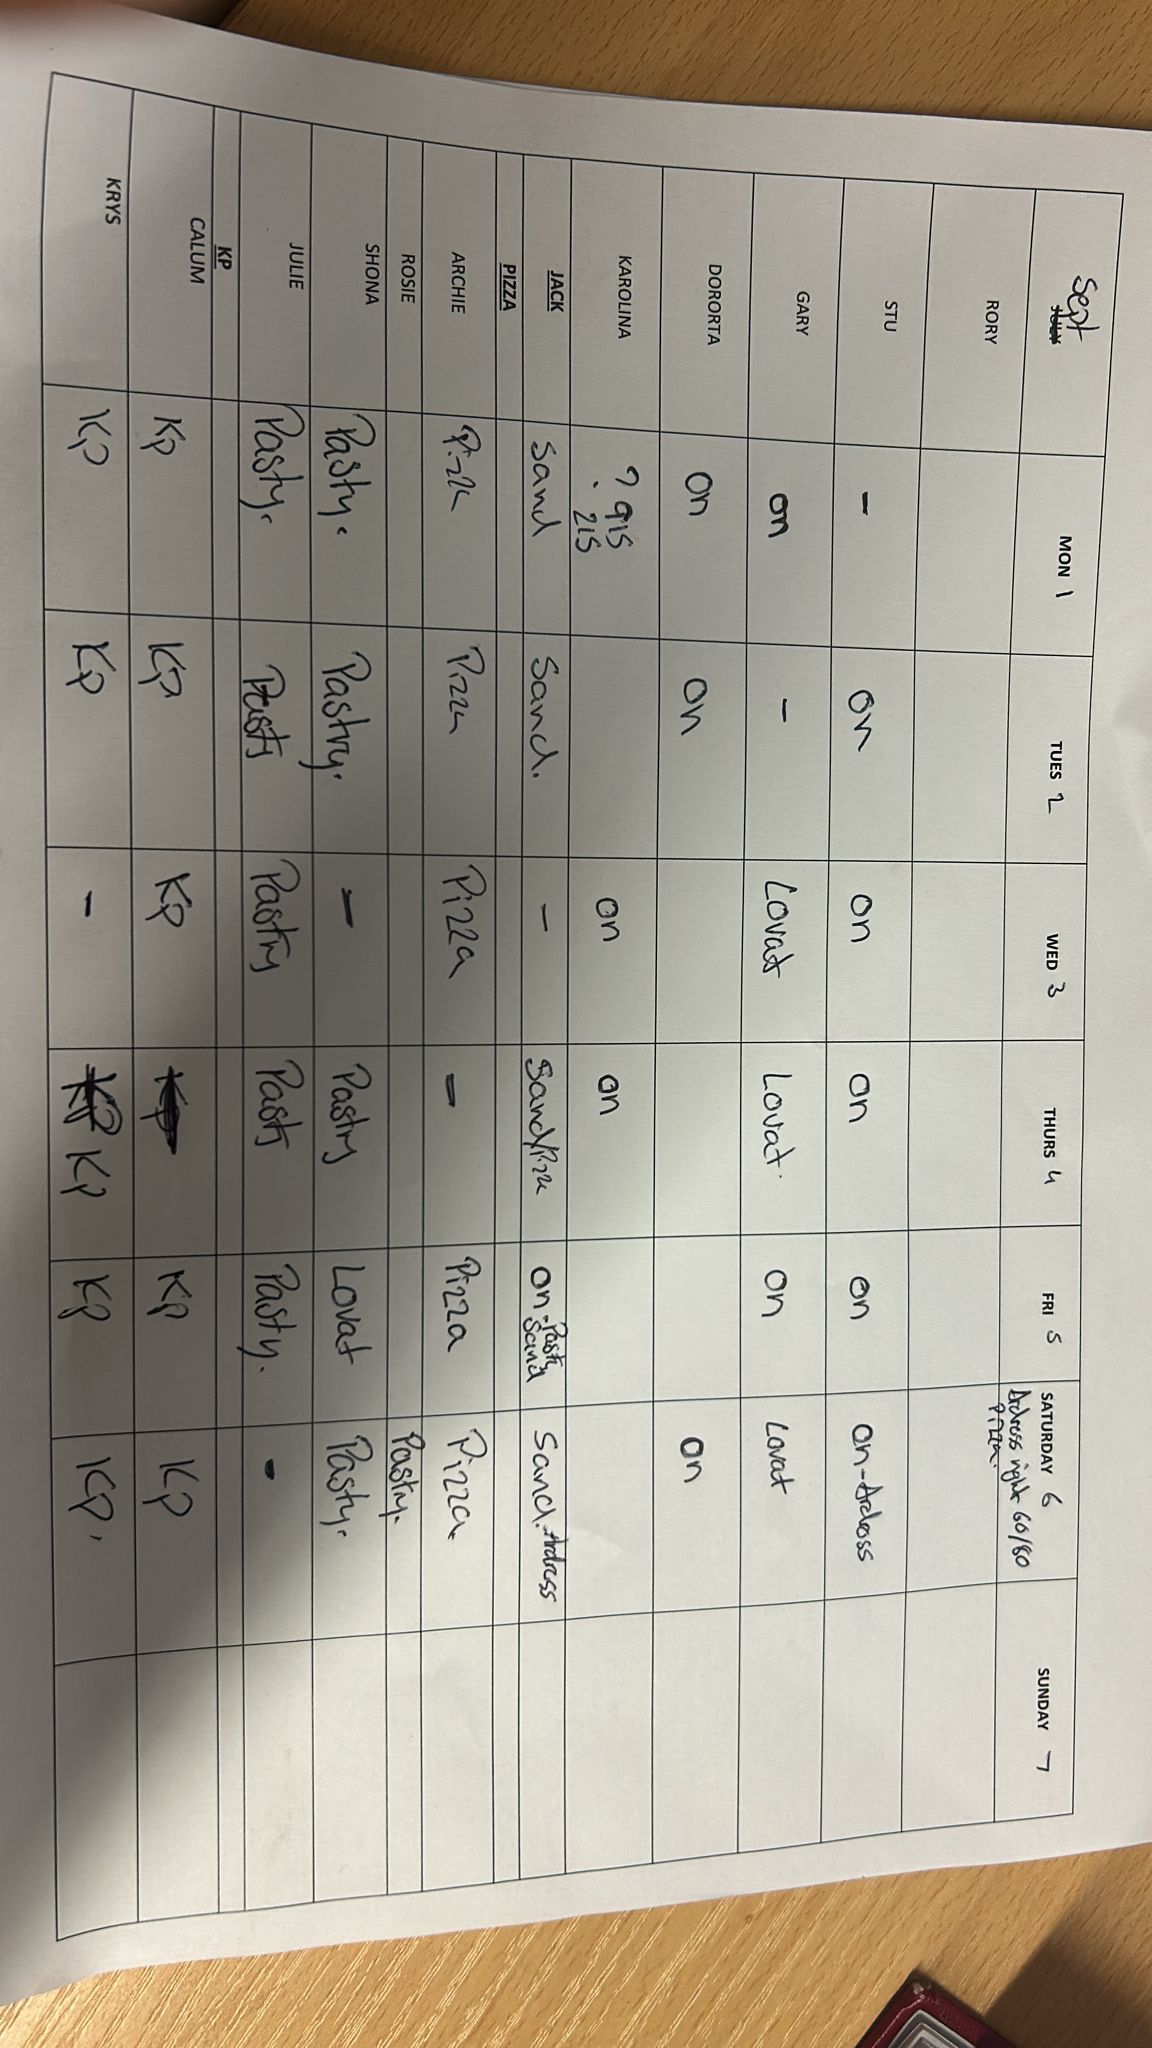 Sept JULY MON 1 TUES 2 WED 3 THURS 4 FRI 5 SATURDAY 6 SUNDAY 7
Ardross night 60/80
Pizza.
RORY
STU - on on on on on-Ardross
GARY on - Lovat Lovat. on Lovat
DORORTA on on on
KAROLINA ? 915 on on
215
JACK Sand Sand. - Sand/Pizza on. Pasty Sand Sand. Ardross
PIZZA
ARCHIE Pizza Pizza Pizza - Pizza Pizza.
ROSIE Pastry.
SHONA Pasty. Pastry. - Pastry Lovat Pasty.
JULIE Pasty. Pasty Pastry Pasty Pasty. -
KP
CALUM KP KP KP KP KP
KRYS KP KP - KP KP KP KP.